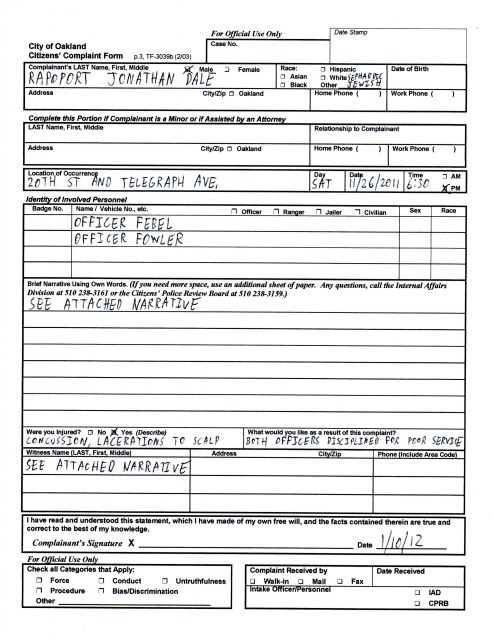 For Official Use Only
Date Stamp
City of Oakland
Citizens' Complaint Form p.3, TF-3039b (2/03)
Case No.
Complainant's LAST Name, First, Middle
Male Female
Race: Hispanic
Asian White SEPHARDIC
Black Other JEWISH
Date of Birth
RAPOPORT JONATHAN DALE
Address City/Zip Oakland Home Phone ( ) Work Phone ( )
Complete this Portion if Complainant is a Minor or if Assisted by an Attorney
LAST Name, First, Middle Relationship to Complainant
Address City/Zip Oakland Home Phone ( ) Work Phone ( )
Location of Occurrence Day Date Time AM
20TH ST AND TELEGRAPH AVE. SAT 11/26/2011 6:30 PM
Identity of Involved Personnel
Badge No. Name / Vehicle No., etc. Officer Ranger Jailer Civilian Sex Race
OFFICER FEBEL
OFFICER FOWLER
Brief Narrative Using Own Words. (If you need more space, use an additional sheet of paper. Any questions, call the Internal Affairs
Division at 510 238-3161 or the Citizens' Police Review Board at 510 238-3159.)
SEE ATTACHED NARRATIVE
Were you Injured? No Yes (Describe) What would you like as a result of this complaint?
CONCUSSION, LACERATIONS TO SCALP BOTH OFFICERS DISCIPLINED FOR POOR SERVICE
Witness Name (LAST, First, Middle) Address City/Zip Phone (Include Area Code)
SEE ATTACHED NARRATIVE
I have read and understood this statement, which I have made of my own free will, and the facts contained therein are true and
correct to the best of my knowledge.
Complainant's Signature X Date 1/10/12
For Official Use Only
Check all Categories that Apply:
Force Conduct Untruthfulness
Procedure Bias/Discrimination
Other
Complaint Received by Date Received
Walk-in Mail Fax
Intake Officer/Personnel
IAD
CPRB